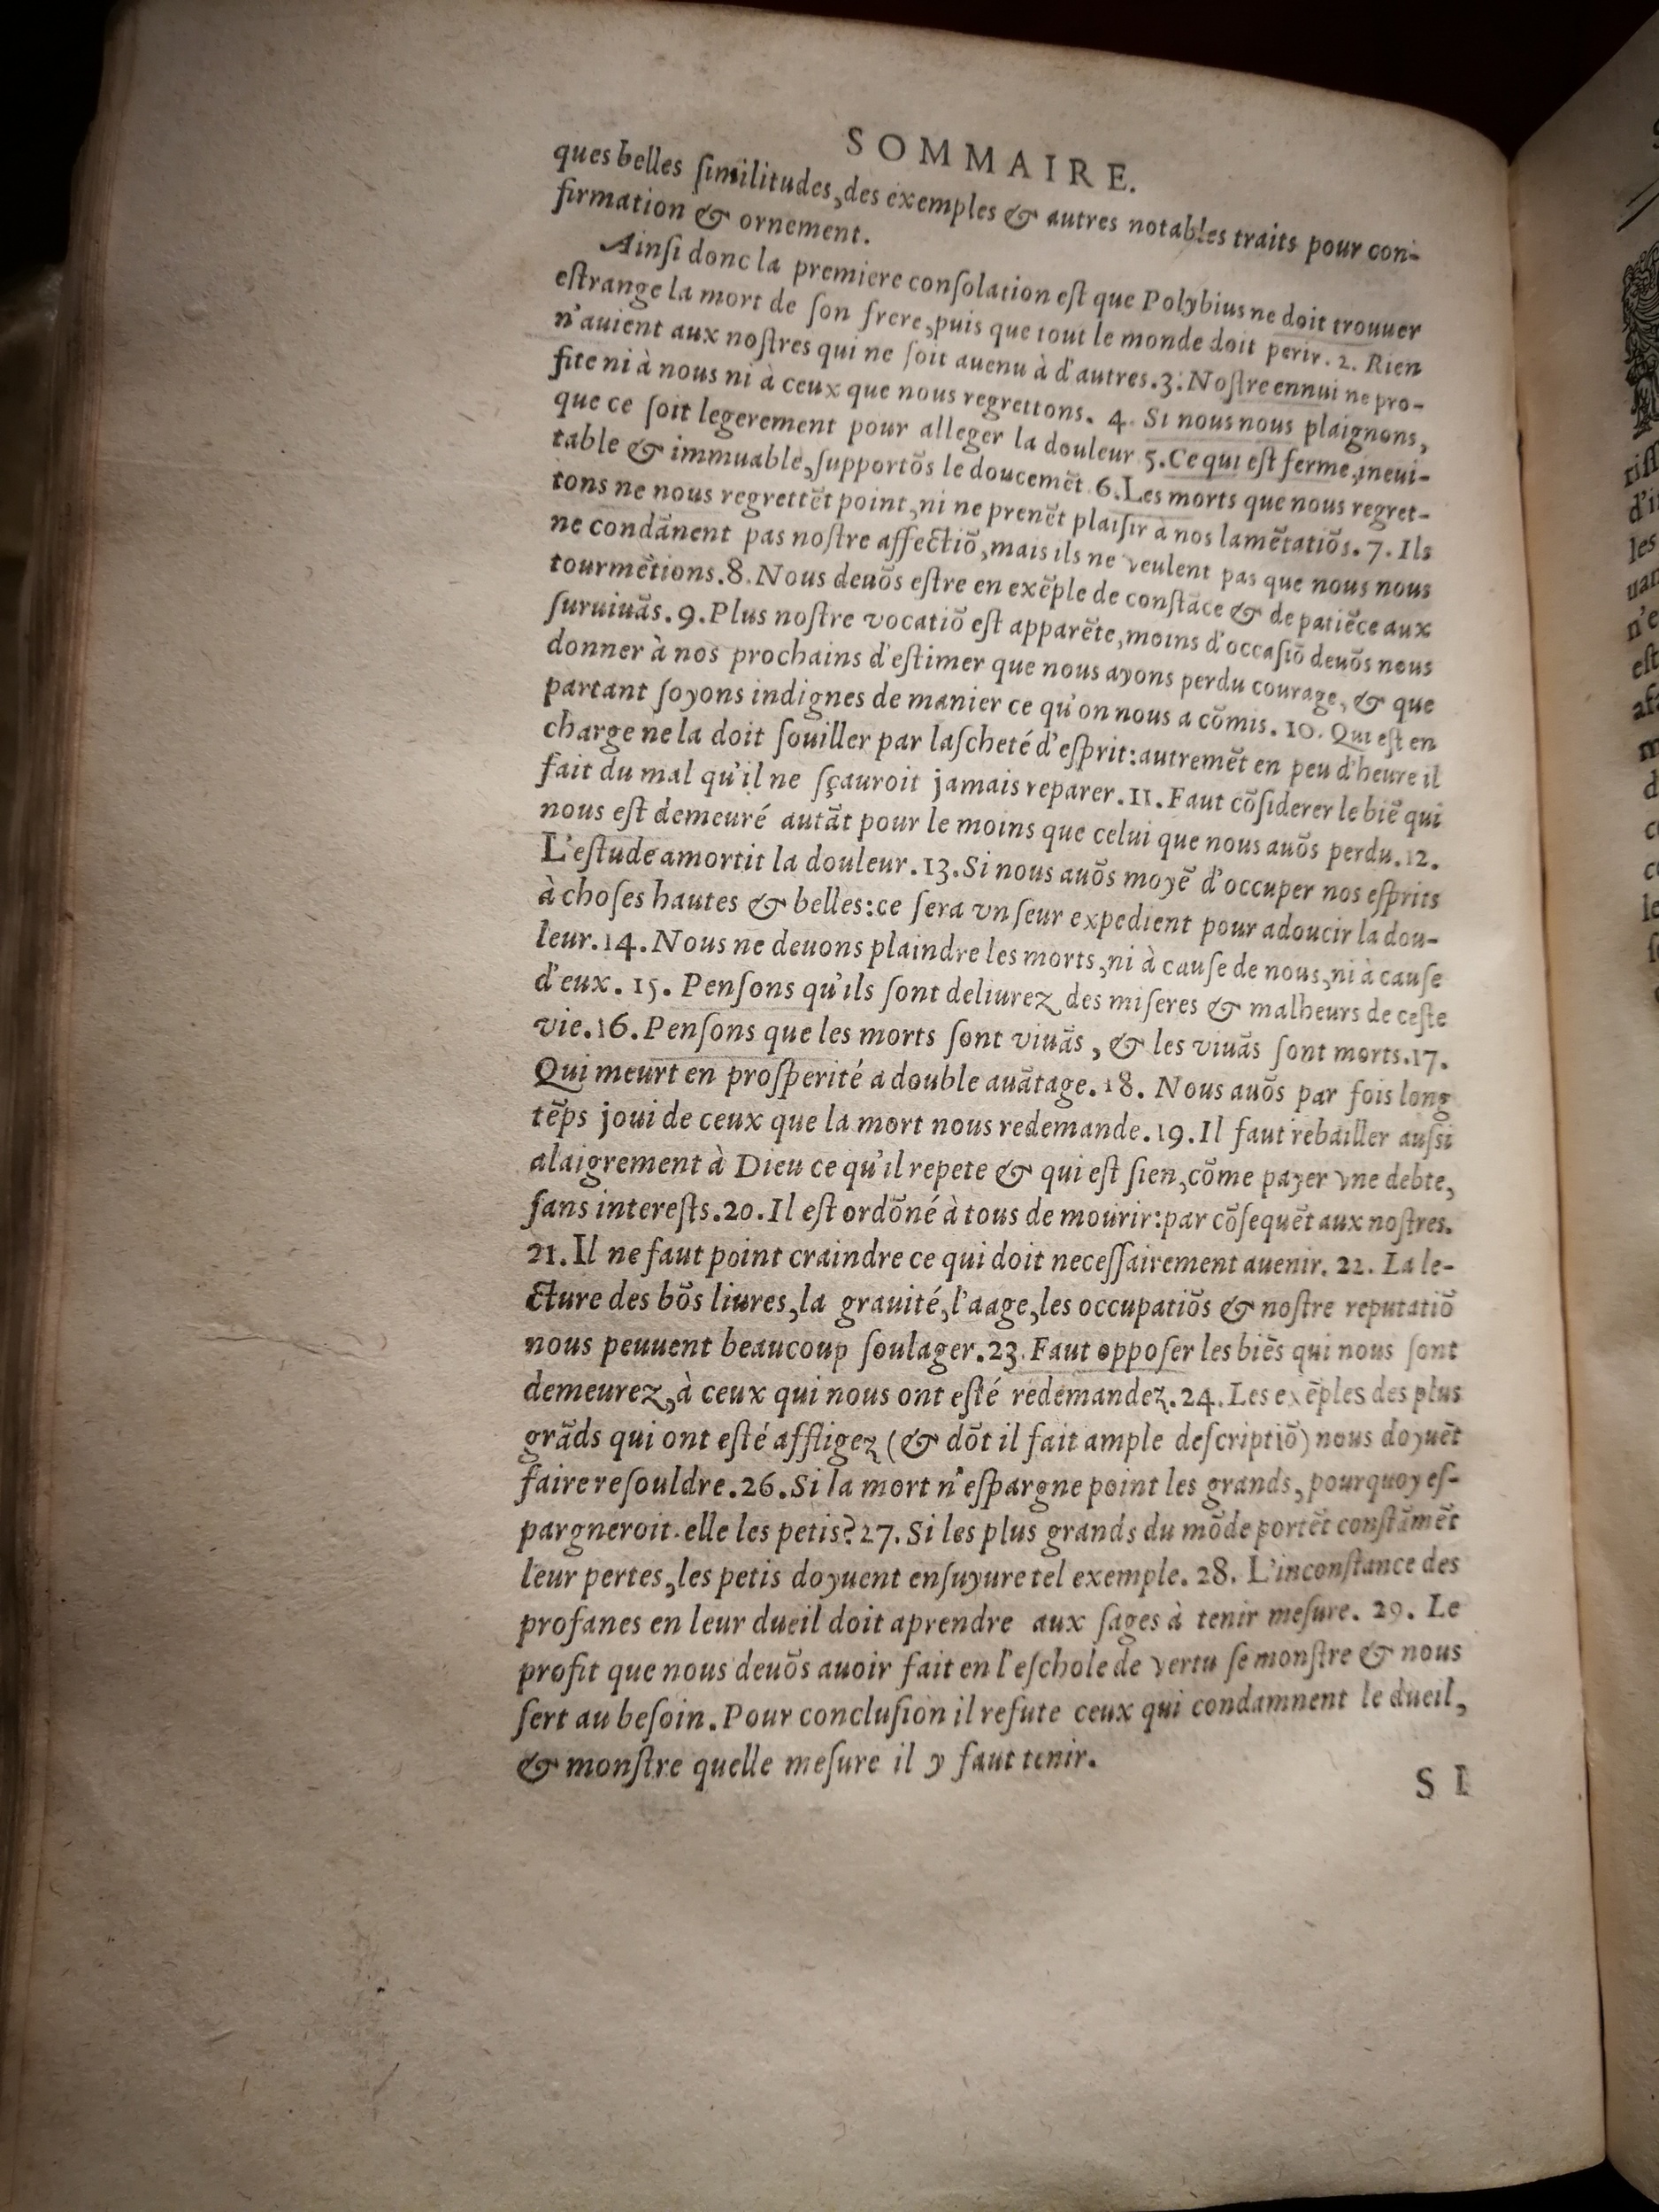 SOMMAIRE.
ques belles ſimilitudes, des exemples & autres notables traits pour con-
firmation & ornement.
Ainſi donc la premiere conſolation eſt que Polybius ne doit trouuer
eſtrange la mort de ſon frere, puis que tout le monde doit perir. 2. Rien
n'auient aux noſtres qui ne ſoit auenu à d'autres. 3. Noſtre ennui ne pro-
fite ni à nous ni à ceux que nous regrettons. 4. Si nous nous plaignons,
que ce ſoit legerement pour alleger la douleur. 5. Ce qui eſt ferme, ineui-
table & immuable, ſupportõs le doucemẽt. 6. Les morts que nous regret-
tons ne nous regrettẽt point, ni ne prenẽt plaiſir à nos lamẽtatiõs. 7. Ils
ne condãnent pas noſtre affectiõ, mais ils ne veulent pas que nous nous
tourmẽtions. 8. Nous deuõs eſtre en exẽple de conſtãce & de patiẽce aux
ſuruiuãs. 9. Plus noſtre vocatiõ eſt apparẽte, moins d'occaſiõ deuõs nous
donner à nos prochains d'eſtimer que nous ayons perdu courage, & que
partant ſoyons indignes de manier ce qu'on nous a cõmis. 10. Qui eſt en
charge ne la doit ſouiller par laſcheté d'eſprit: autremẽt en peu d'heure il
fait du mal qu'il ne ſçauroit jamais reparer. 11. Faut cõſiderer le biẽ qui
nous eſt demeuré autãt pour le moins que celui que nous auõs perdu. 12.
L'eſtude amortit la douleur. 13. Si nous auõs moyẽ d'occuper nos eſprits
à choſes hautes & belles: ce ſera vn ſeur expedient pour adoucir la dou-
leur. 14. Nous ne deuons plaindre les morts, ni à cauſe de nous, ni à cauſe
d'eux. 15. Penſons qu'ils ſont deliurez des miſeres & malheurs de ceſte
vie. 16. Penſons que les morts ſont viuãs, & les viuãs ſont morts. 17.
Qui meurt en proſperité a double auãtage. 18. Nous auõs par fois long
tẽps joui de ceux que la mort nous redemande. 19. Il faut rebailler auſsi
alaigrement à Dieu ce qu'il repete & qui eſt ſien, cõme payer vne debte,
ſans intereſts. 20. Il eſt ordõné à tous de mourir: par cõſequẽt aux noſtres.
21. Il ne faut point craindre ce qui doit neceſſairement auenir. 22. La le-
cture des bõs liures, la grauité, l'aage, les occupatiõs & noſtre reputatiõ
nous peuuent beaucoup ſoulager. 23. Faut oppoſer les biẽs qui nous ſont
demeurez, à ceux qui nous ont eſté redemandez. 24. Les exẽples des plus
grãds qui ont eſté affligez (& dõt il fait ample deſcriptiõ) nous doyuẽt
faire reſouldre. 26. Si la mort n'eſpargne point les grands, pourquoy eſ-
pargneroit-elle les petis? 27. Si les plus grands du mõde portẽt conſtãmẽt
leur pertes, les petis doyuent enſuyure tel exemple. 28. L'inconſtance des
profanes en leur dueil doit aprendre aux ſages à tenir meſure. 29. Le
profit que nous deuõs auoir fait en l'eſchole de vertu ſe monſtre & nous
ſert au beſoin. Pour concluſion il refute ceux qui condamnent le dueil,
& monſtre quelle meſure il y faut tenir.
S I